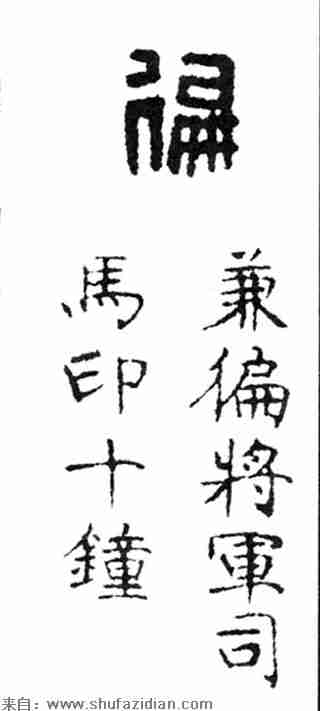 徧
兼徧將軍司
馬印十鐘
来自：www.shufazidian.com